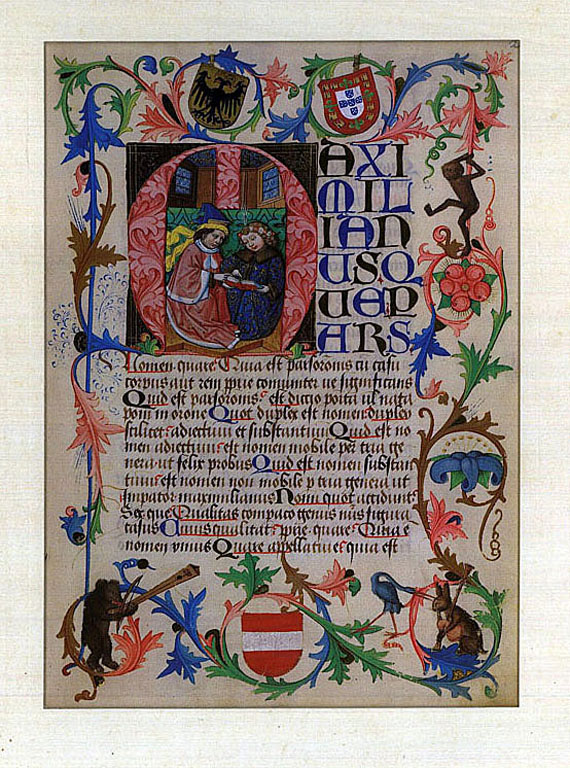 MAXI
MILI
IAN
USQ
UE P
ARS
Nomen quare Quia est pars oronis cu casu
corpus aut rem proprie comuniter ve significans
Quid est pars oronis est dictio posita ul nata
poni in orone Quot duplex est nomen duplex
scilicet adiectiuu et substantiuu Quid est no
men adiectiuu est nomen mobile per tria ge
nera ut felix probus Quid est nomen substan
tiuu est nomen non mobile p tria genera ut
Imperator maximilianus Nomini quot accidunt
Sex que Qualitas compaco genus nus figura
casus Cuius qualitatis quare Quia e
nomen vnius Quare appellatiue quia est